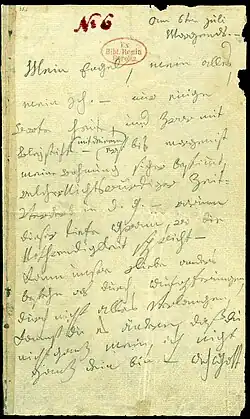 No 6
am 6ten juli
Morgends. –
Ex
Bibl. Regia
Mein Engel, mein alles,
mein Ich. – nur einige
Worte heute, und zwar mit
Bleystift – (mit deinem) – bis morgen ist
meine wohnung sicher bestimt,
welcher Nichtswürdiger Zeit-
in d. g. – warum
dieser tiefe Gram, wo die
Nothwendigkeit spricht –
Kann unsre Liebe anders
bestehn als durch Aufopferungen,
durch nicht alles verlangen,
kannst du es ändern, daß du
nicht ganz mein, ich nicht
ganz dein bin –